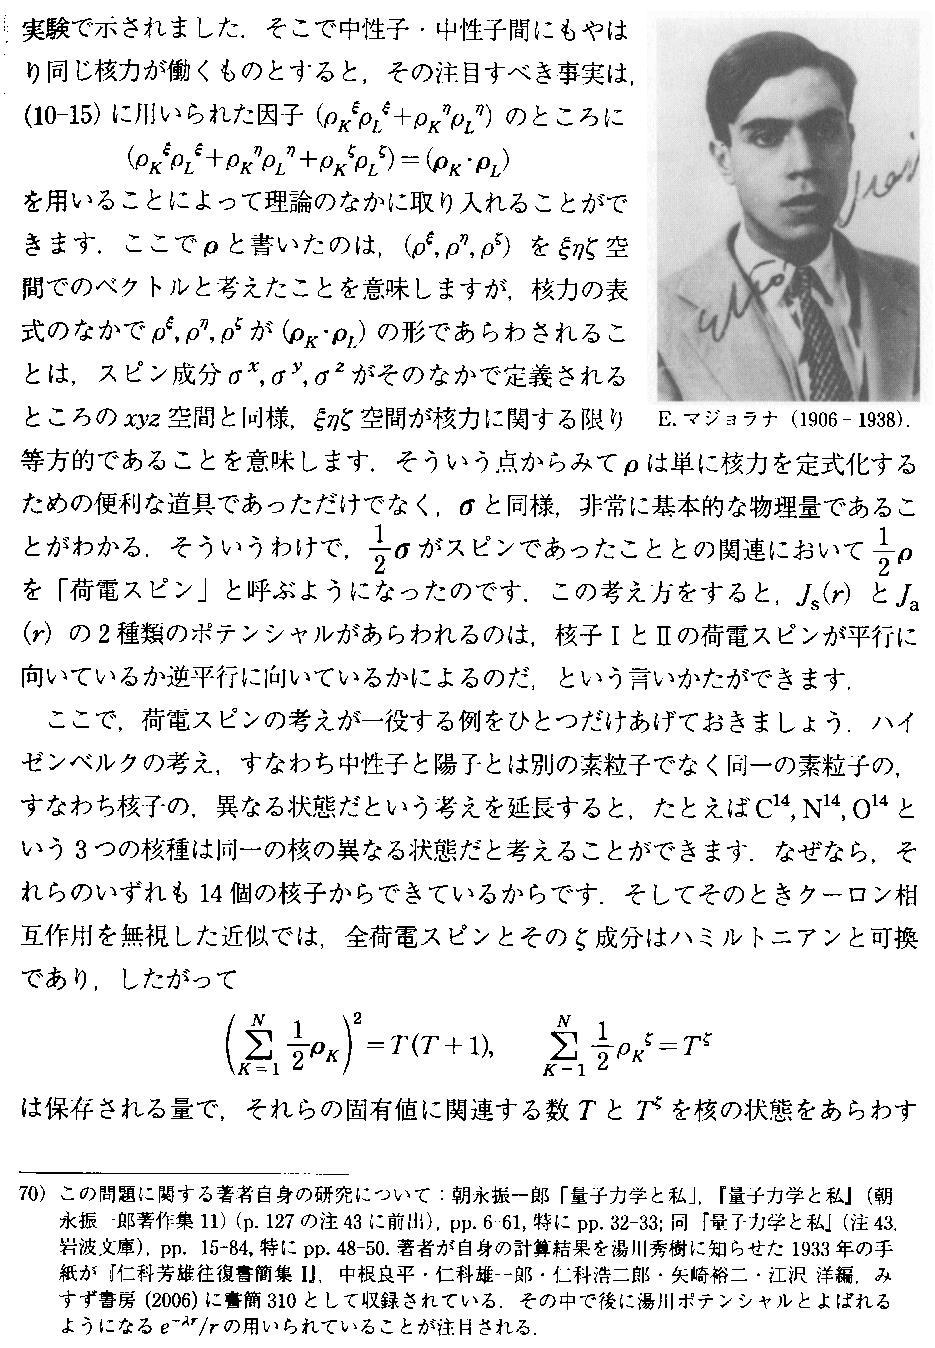 実験で示されました．そこで中性子・中性子間にもやは
り同じ核力が働くものとすると，その注目すべき事実は，
(10-15) に用いられた因子 (ρ_K^ξρ_L^ξ+ρ_K^ηρ_L^η) のところに
(ρ_K^ξρ_L^ξ+ρ_K^ηρ_L^η+ρ_K^ζρ_L^ζ)=(ρ_K·ρ_L)
を用いることによって理論のなかに取り入れることがで
きます．ここでρと書いたのは，(ρ^ξ, ρ^η, ρ^ζ) を ξηζ 空
間でのベクトルと考えたことを意味しますが，核力の表
式のなかで ρ^ξ, ρ^η, ρ^ζ が (ρ_K·ρ_L) の形であらわされるこ
とは，スピン成分 σ^x, σ^y, σ^z がそのなかで定義される
ところの xyz 空間と同様，ξηζ 空間が核力に関する限り
E. マジョラナ (1906-1938).
等方的であることを意味します．そういう点からみて ρ は単に核力を定式化する
ための便利な道具であっただけでなく，σ と同様，非常に基本的な物理量であるこ
とがわかる．そういうわけで，1/2 σ がスピンであったこととの関連において 1/2 ρ
を「荷電スピン」と呼ぶようになったのです．この考え方をすると，J_s(r) と J_a
(r) の 2 種類のポテンシャルがあらわれるのは，核子ⅠとⅡの荷電スピンが平行に
向いているか逆平行に向いているかによるのだ，という言いかたができます．
ここで，荷電スピンの考えが一役する例をひとつだけあげておきましょう．ハイ
ゼンベルクの考え，すなわち中性子と陽子とは別の素粒子でなく同一の素粒子の，
すなわち核子の，異なる状態だという考えを延長すると，たとえば C^14, N^14, O^14 と
いう 3 つの核種は同一の核の異なる状態だと考えることができます．なぜなら，そ
れらのいずれも 14 個の核子からできているからです．そしてそのときクーロン相
互作用を無視した近似では，全荷電スピンとその ζ 成分はハミルトニアンと可換
であり，したがって
(∑_{K=1}^N 1/2 ρ_K)^2=T(T+1), ∑_{K-1}^N 1/2 ρ_K^ζ=T^ζ
は保存される量で，それらの固有値に関連する数 T と T^ζ を核の状態をあらわす
70) この問題に関する著者自身の研究について：朝永振一郎「量子力学と私」，『量子力学と私』(朝
永振一郎著作集 11) (p. 127 の注 43 に前出)，pp. 6-61, 特に pp. 32-33; 同『量子力学と私』(注 43,
岩波文庫)，pp. 15-84, 特に pp. 48-50. 著者が自身の計算結果を湯川秀樹に知らせた 1933 年の手
紙が『仁科芳雄往復書簡集 I』，中根良平・仁科雄一郎・仁科浩二郎・矢崎裕二・江沢 洋編，み
すず書房 (2006) に書簡 310 として収録されている．その中で後に湯川ポテンシャルとよばれる
ようになる e^{-λr}/r の用いられていることが注目される．